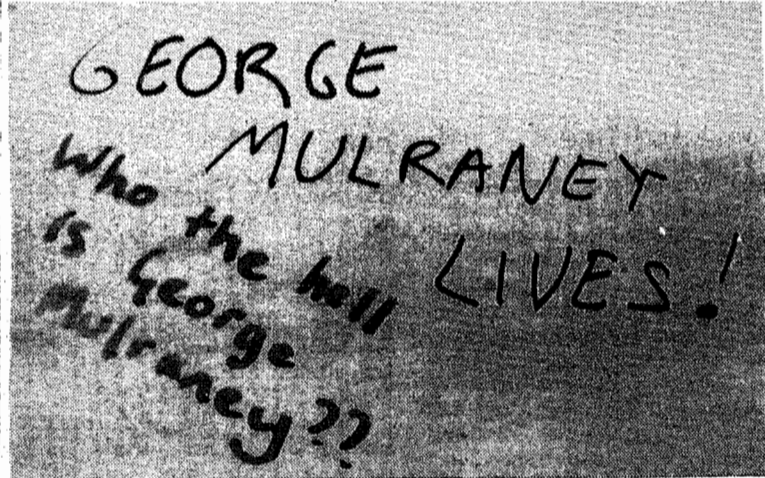 GEORGE
MULRANEY
LIVES!
Who the hell
is George
Mulraney??